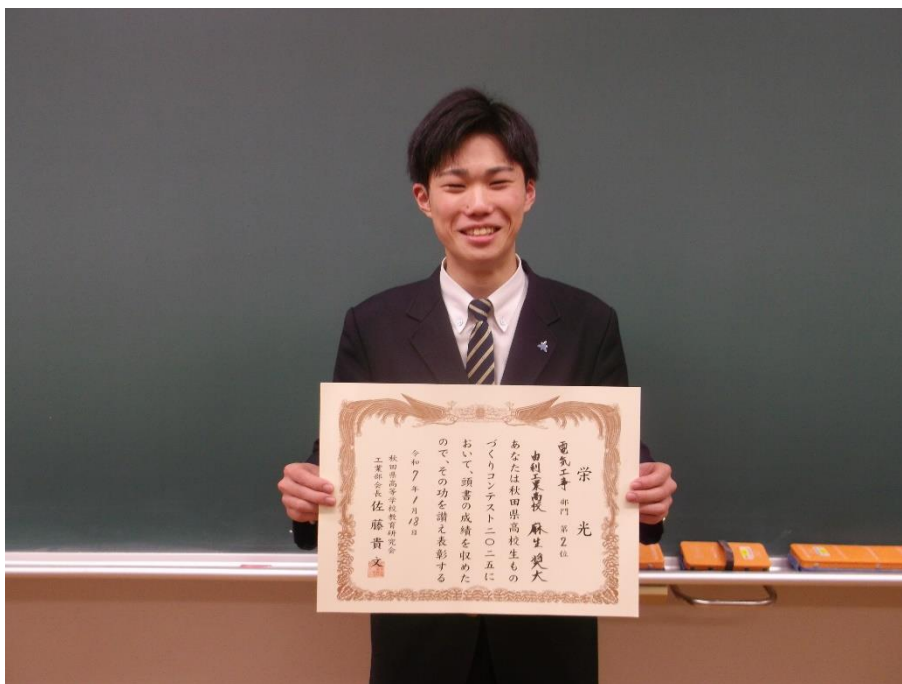 栄光
電気工事部門 第2位
由利工業高校 麻生 奨大
あなたは秋田県高校生もの
づくりコンテスト二〇二五に
おいて、頭書の成績を収めた
ので、その功を讃え表彰する
令和7年1月18日
秋田県高等学校教育研究会
工業部会長 佐藤貴文